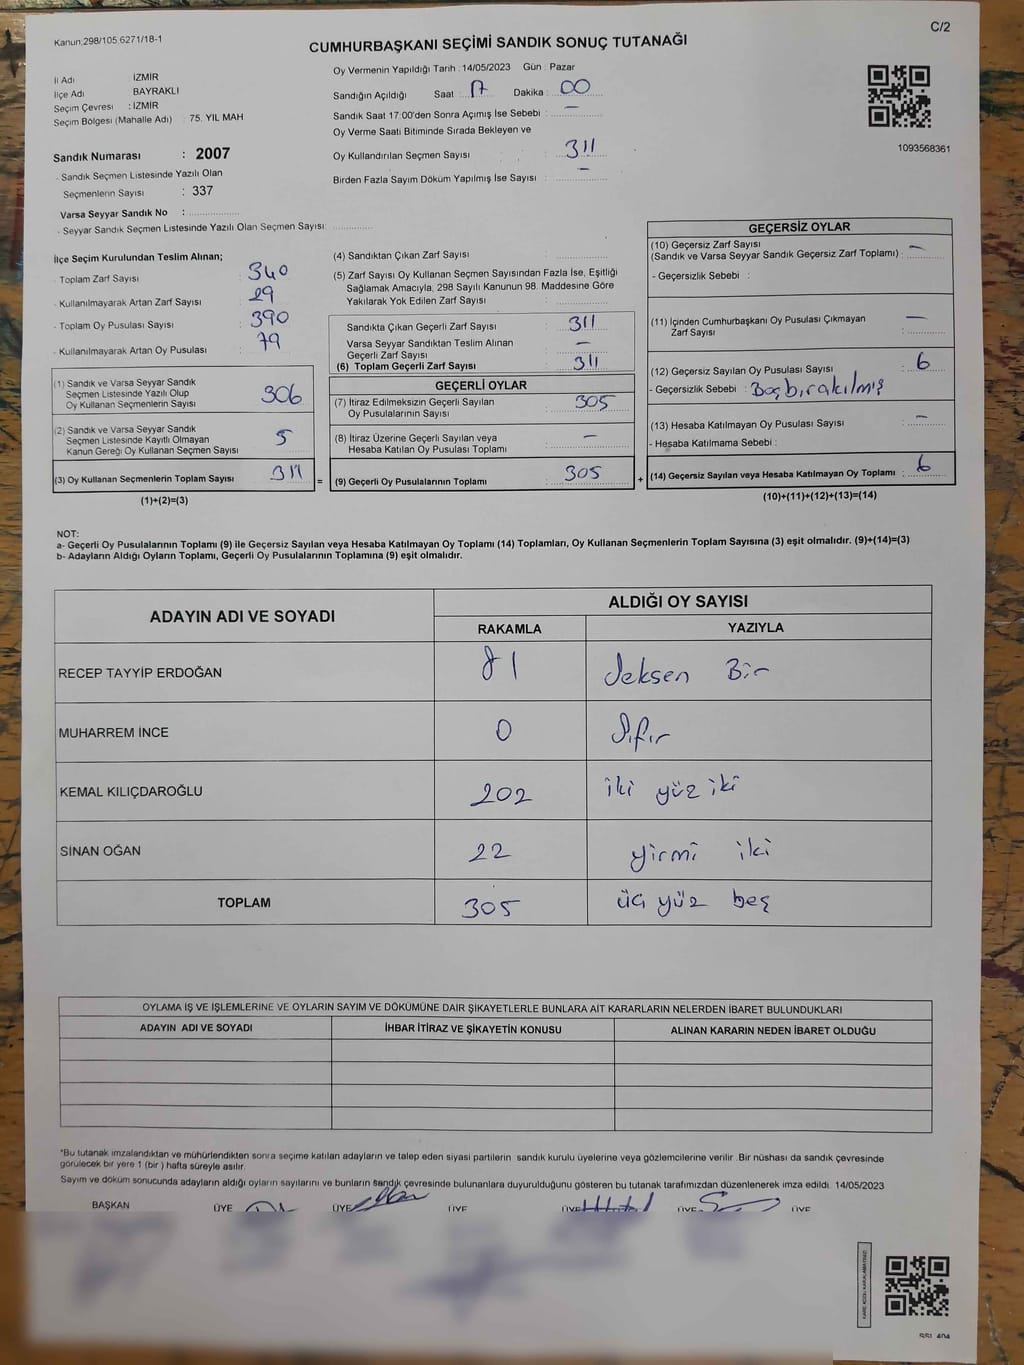 C/2
Kanun.298/105.6271/18-1
CUMHURBAŞKANI SEÇİMİ SANDIK SONUÇ TUTANAĞI
İl Adı İZMİR
İlçe Adı BAYRAKLI
Seçim Çevresi : İZMİR
Seçim Bölgesi (Mahalle Adı) : 75. YIL MAH
Sandık Numarası : 2007
- Sandık Seçmen Listesinde Yazılı Olan
Seçmenlerin Sayısı : 337
Varsa Seyyar Sandık No :
- Seyyar Sandık Seçmen Listesinde Yazılı Olan Seçmen Sayısı:
Oy Vermenin Yapıldığı Tarih : 14/05/2023 Gün : Pazar
Sandığın Açıldığı Saat : 17 Dakika : 00
Sandık Saat 17:00'den Sonra Açımış İse Sebebi : —
Oy Verme Saati Bitiminde Sırada Bekleyen ve
Oy Kullandırılan Seçmen Sayısı : 311
Birden Fazla Sayım Döküm Yapılmış İse Sayısı : —
1093568361
İlçe Seçim Kurulundan Teslim Alınan;
- Toplam Zarf Sayısı : 340
- Kullanılmayarak Artan Zarf Sayısı : 29
- Toplam Oy Pusulası Sayısı : 390
- Kullanılmayarak Artan Oy Pusulası : 79
(1) Sandık ve Varsa Seyyar Sandık
Seçmen Listesinde Yazılı Olup
Oy Kullanan Seçmenlerin Sayısı 306
(2) Sandık ve Varsa Seyyar Sandık
Seçmen Listesinde Kayıtlı Olmayan
Kanun Gereği Oy Kullanan Seçmen Sayısı 5
(3) Oy Kullanan Seçmenlerin Toplam Sayısı 311 =
(1)+(2)=(3)
(4) Sandıktan Çıkan Zarf Sayısı :
(5) Zarf Sayısı Oy Kullanan Seçmen Sayısından Fazla İse, Eşitliği
Sağlamak Amacıyla, 298 Sayılı Kanunun 98. Maddesine Göre
Yakılarak Yok Edilen Zarf Sayısı :
Sandıkta Çıkan Geçerli Zarf Sayısı : 311
Varsa Seyyar Sandıktan Teslim Alınan
Geçerli Zarf Sayısı : —
(6) Toplam Geçerli Zarf Sayısı : 311
GEÇERLİ OYLAR
(7) İtiraz Edilmeksizin Geçerli Sayılan
Oy Pusulalarının Sayısı : 305
(8) İtiraz Üzerine Geçerli Sayılan veya
Hesaba Katılan Oy Pusulası Toplamı : —
(9) Geçerli Oy Pusulalarının Toplamı : 305 +
GEÇERSİZ OYLAR
(10) Geçersiz Zarf Sayısı
(Sandık ve Varsa Seyyar Sandık Geçersiz Zarf Toplamı) : —
- Geçersizlik Sebebi :
(11) İçinden Cumhurbaşkanı Oy Pusulası Çıkmayan
Zarf Sayısı : —
(12) Geçersiz Sayılan Oy Pusulası Sayısı : 6
- Geçersizlik Sebebi : Boş bırakılmış
(13) Hesaba Katılmayan Oy Pusulası Sayısı : —
- Hesaba Katılmama Sebebi :
(14) Geçersiz Sayılan veya Hesaba Katılmayan Oy Toplamı : 6
(10)+(11)+(12)+(13)=(14)
NOT:
a- Geçerli Oy Pusulalarının Toplamı (9) ile Geçersiz Sayılan veya Hesaba Katılmayan Oy Toplamı (14) Toplamları, Oy Kullanan Seçmenlerin Toplam Sayısına (3) eşit olmalıdır. (9)+(14)=(3)
b- Adayların Aldığı Oyların Toplamı, Geçerli Oy Pusulalarının Toplamına (9) eşit olmalıdır.
ADAYIN ADI VE SOYADI ALDIĞI OY SAYISI
RAKAMLA YAZIYLA
RECEP TAYYİP ERDOĞAN 81 Seksen Bir
MUHARREM İNCE 0 Sıfır
KEMAL KILIÇDAROĞLU 202 iki yüz iki
SİNAN OĞAN 22 yirmi iki
TOPLAM 305 üç yüz beş
OYLAMA İŞ VE İŞLEMLERİNE VE OYLARIN SAYIM VE DÖKÜMÜNE DAİR ŞİKAYETLERLE BUNLARA AİT KARARLARIN NELERDEN İBARET BULUNDUKLARI
ADAYIN ADI VE SOYADI İHBAR İTİRAZ VE ŞİKAYETİN KONUSU ALINAN KARARIN NEDEN İBARET OLDUĞU
*Bu tutanak imzalandıktan ve mühürlendikten sonra seçime katılan adayların ve talep eden siyasi partilerin sandık kurulu üyelerine veya gözlemcilerine verilir .Bir nüshası da sandık çevresinde
görülecek bir yere 1 (bir ) hafta süreyle asılır.
Sayım ve döküm sonucunda adayların aldığı oyların sayılarını ve bunların sandık çevresinde bulunanlara duyurulduğunu gösteren bu tutanak tarafımızdan düzenlenerek imza edildi. 14/05/2023
BAŞKAN ÜYE ÜYE ÜYE ÜYE ÜYE ÜYE